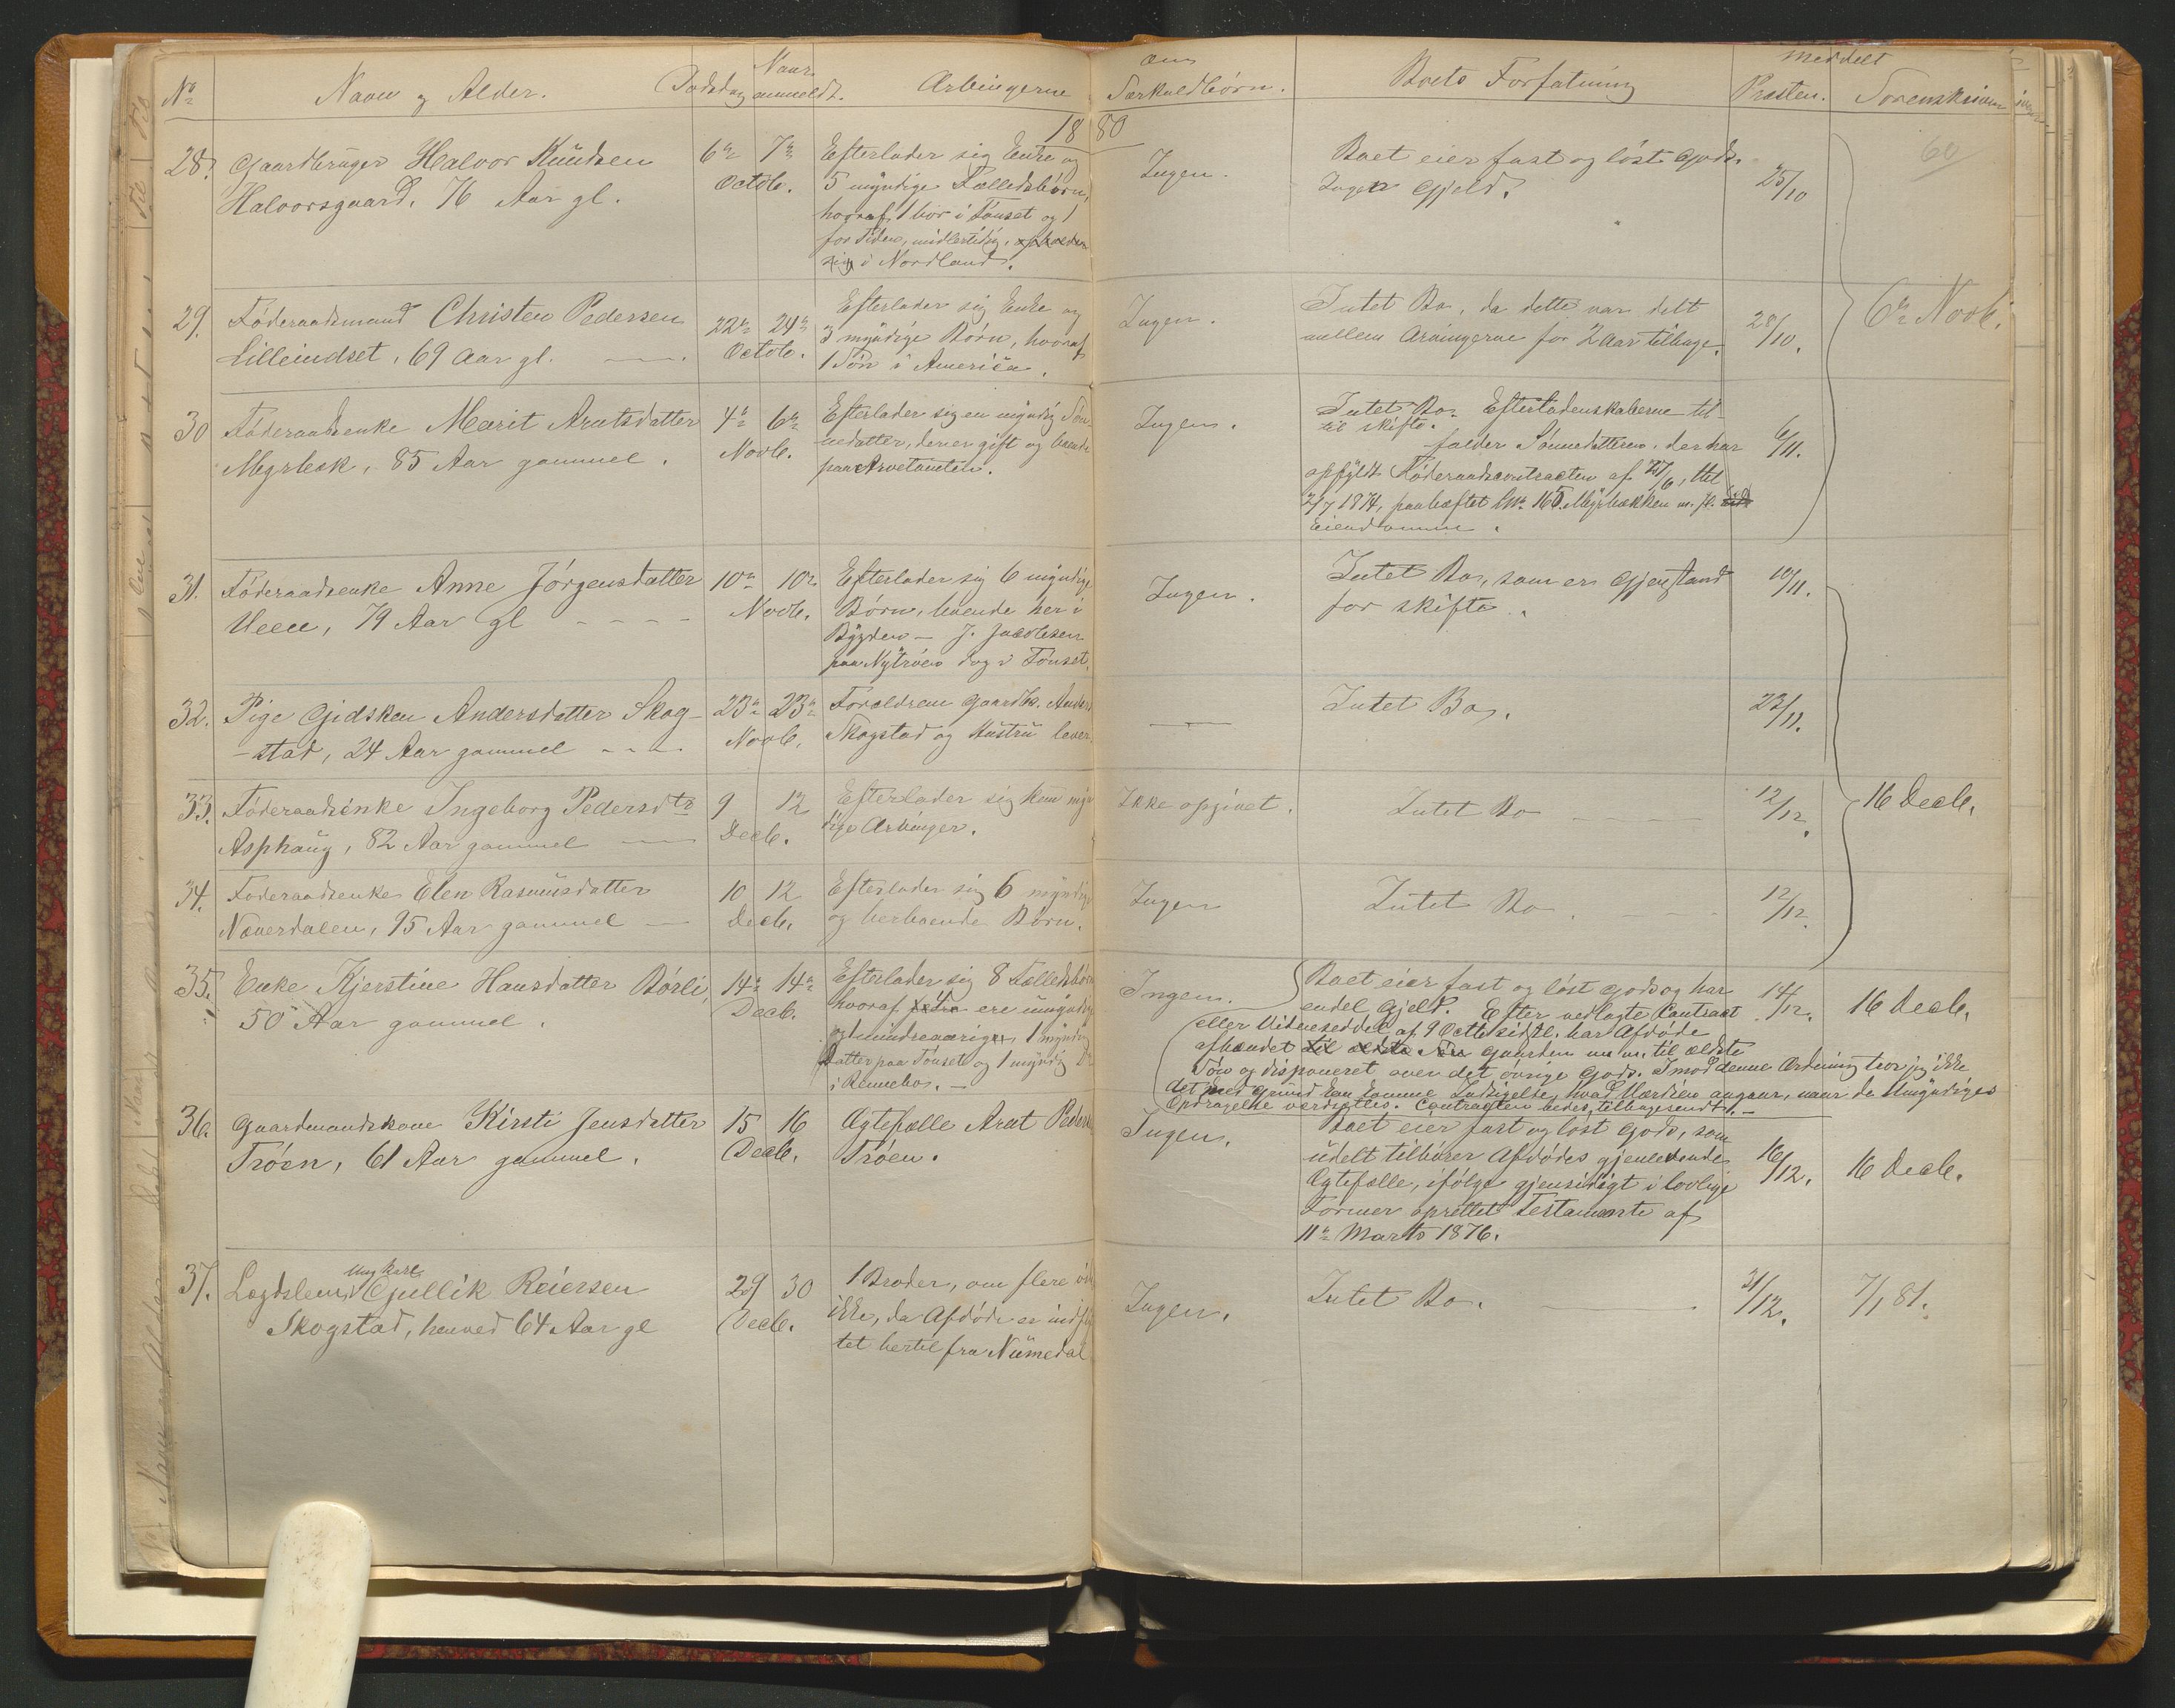 Naar
om
meddelt
No Navn og Alder. Dødsdag anmeldt. Arvingerne Særkuldbørn. Boets Forfatning Presten. Sorenskriver
1880
60
28. Gaardbruger Halvor Knudsen 6te 7de Efterlader sig Enke og Ingen. Boet eier fast og løst Gods. 25/10
Halvorsgaard. 76 Aar gl. Octob. 5 myndige Fælledsbørn, Ingen Gjeld.
hvoraf 1 bor i Tønset og 1
for Tiden, midlertidig, opholder
sig i Nordland.
6te Novb.
29. Føderaadsmand Christen Pedersen 22de 24de Efterlader sig Enke og Ingen. Intet Bo, da dette var delt 28/10.
Lilleindset, 69 Aar gl. Octob. 3 myndige Børn, hvoraf mellem Arvingerne for 2 Aar tilbage.
1 Søn i America.
30 Føderaadsenke Marit Arntsdatter 4de 6te Efterlader sig en myndig Søn- Ingen. Intet Bo. Efterladenskaberne til- 6/11.
til skifte.
Myrbek, 85 Aar gammel. Novb. nedatter, der er gift og boende falder Sønnedatteren, der har
paa Arvetomten. opfyldt Føderaadscontracten af 27/6, thl.
2/7 1874, paaheftet Lno 165. Myrbækken m. fl.
Eiendomme.
31. Føderaadsenke Anne Jørgensdatter 10de 10de Efterlader sig 6 myndige Ingen. Intet Bo, som er Gjenstand 10/11.
Ueen, 79 Aar gl Novb. Børn, boende her i for skifte.
Bygden – J. Jacobsen
paa Nytrøen dog i Tønset.
32. Pige Gidsken Andersdatter Skog- 23de 23de Forældrene Gaardb. Anders — Intet Bo. 23/11.
-stad, 24 Aar gammel Novb. Skogstad og Hustru lever.
33. Føderaadsenke Ingeborg Pedersdtr 9 12 Efterlader sig kun myn- Ikke opgivet. Intet Bo 12/12. 16 Decb.
Asphaug, 82 Aar gammel Decb. dige Arvinger.
34. Føderaadsenke Elen Rasmusdatter 10 12 Efterlader sig 6 myndige Ingen Intet Bo. 12/12.
Næverdalen, 75 Aar gammel Decb. og herboende Børn.
35. Enke Kjerstine Hansdatter Børli, 14de 14de Efterlader sig 8 Fælledsbørn Ingen. Boet eier fast og løst Gods og har 14/12. 16 Decb.
50 Aar gammel. Decb. hvoraf 4 ere umyndige endel Gjeld. Efter vedlagte Contract
og 1 mindreaarig, 1 myndig eller Vidneseddel af 9 Octb. sidstl. har Afdøde
Datter paa Tønset og 1 myndig afhændet til ældste Søn Gaarden m. m. til ældste
i Rennebo. – Søn og disponeret over det øvrige Gods. Imod denne Ordning tror jeg ikke
det med Grund kan komme Indsigelse, hvad Værdien angaar, naar de Umyndiges
Opdragelse værdsættes. Contracten bedes tilbagesendt. –
36. Gaardmandskone Kirsti Jensdatter 15 16 Ægtefælle Arnt Peders. Ingen. Boet eier fast og løst Gods, som 16/12. 16 Decb.
Trøen, 61 Aar gammel. Decb. Trøen. udelt tilhører Afdødes gjenlevende
Ægtefælle, ifølge gjensidigt i lovlige
Former oprettet Testamente af
11te Marts 1876.
37. Lægdslem, Ungkarl Gullik Reiersen 29 30 1 Broder, om flere Ingen. Intet Bo. 31/12. 7/1 81.
Skogstad, henved 64 Aar gl Decb. ikke, da Afdøde er indflyt-
tet hertil fra Numedal